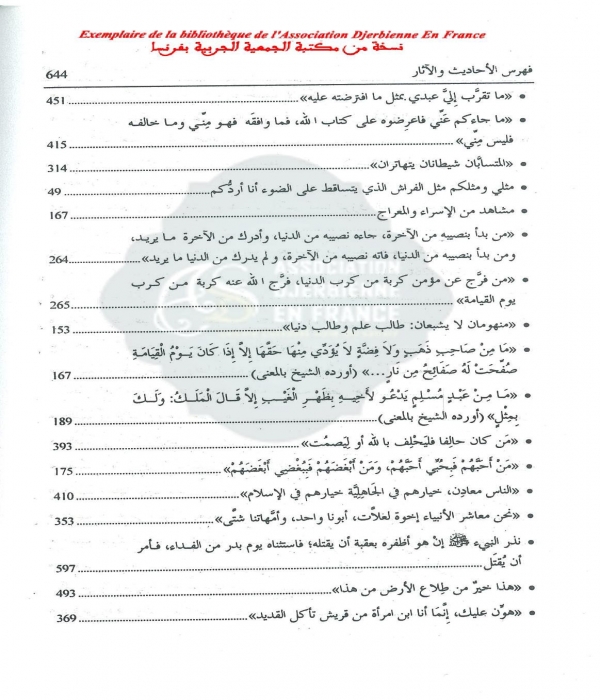 Exemplaire de la bibliothèque de l'Association Djerbienne En France
نسخة من مكتبة الجمعية الجربية بفرنسا
فهرس الأحاديث والآثار 644
• «ما تقرَّب إليَّ عبدي بمثل ما افترضته عليه» 451
• «ما جاءكم عَنِّي فاعرضوه على كتاب الله، فما وافقَه فهو مِنِّي وما خالفه
فليس مِنِّي» 415
• «المتسابَّان شيطانان يتهاتران» 314
• مثلي ومثلكم مثل الفراش الذي يتساقط على الضوء أنا أردُّكم 49
• مشاهد من الإسراء والمعراج 167
• «من بدأ بنصيبه من الآخرة، جاءه نصيبه من الدنيا، وأدرك من الآخرة ما يريد،
ومن بدأ بنصيبه من الدنيا، فاته نصيبه من الآخرة، و لم يدرك من الدنيا ما يريد» 264
• «من فرَّج عن مؤمن كربة من كرب الدنيا، فرَّج الله عنه كربة من كرب
يوم القيامة» 265
• «منهومان لا يشبعان: طالب علم وطالب دنيا» 153
• «مَا مِنْ صَاحِبِ ذَهَبٍ وَلاَ فِضَّةٍ لاَ يُؤَدِّي مِنْهَا حَقَّهَا إِلاَّ إِذَا كَانَ يَوْمُ الْقِيَامَةِ
صُفِّحَتْ لَهُ صَفَائِحُ مِن نَارٍ...» (أورده الشيخ بالمعنى) 167
• «مَا مِنْ عَبْدٍ مُسْلِمٍ يَدْعُو لأَخِيهِ بِظَهْرِ الْغَيْبِ إِلاَّ قَالَ الْمَلَكُ: وَلَكَ
بِمِثْلٍ» (أورده الشيخ بالمعنى) 189
• «مَن كان حالِفا فليَحْلِف با لله أو لِيَصمُت» 393
• «مَنْ أَحَبَّهُمْ فَبِحُبِّي أَحَبَّهُمْ، وَمَنْ أَبْغَضَهُمْ فَبِبُغْضِي أَبْغَضَهُمْ» 175
• «الناس معادِن، خيارهم في الجَاهِلِيَّة خيارهم في الإسلام» 410
• «نحن معاشر الأنبياء إخوة لعَلاَّت، أبونا واحد، وأمَّهاتنا شتَّى» 353
• نذر النبيء ﷺ إنْ هو أظفره بعقبة أن يقتله؛ فاستثناه يوم بدر من الفداء، فأمر
أن يُقتَل 597
• «هذا خيرٌ من طِلاع الأرض من هذا» 493
• «هوِّن عليك، إنَّمَا أنا ابن امرأة من قريش تأكل القديد» 369
ASSOCIATION
DJERBIENNE
EN FRANCE